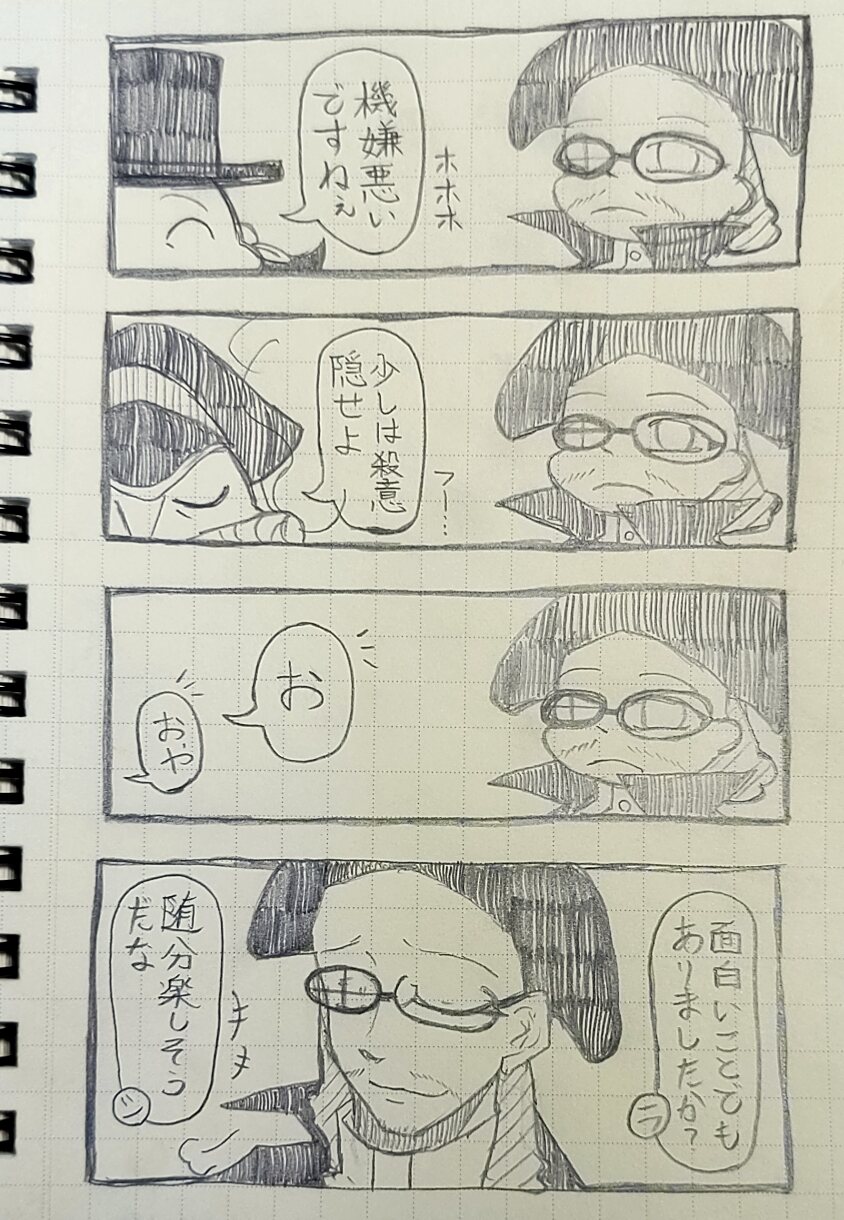 機嫌悪い
ですねぇ
ホホホ
少しは殺意
隠せよ
フー…
お
おや
面白いことでも
ありましたか?
ラ
随分楽しそう
だな
ジ
キメ